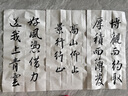 博觀而約取
厚積而薄發
高山仰止
景行行止
好風憑借力
送我上青雲